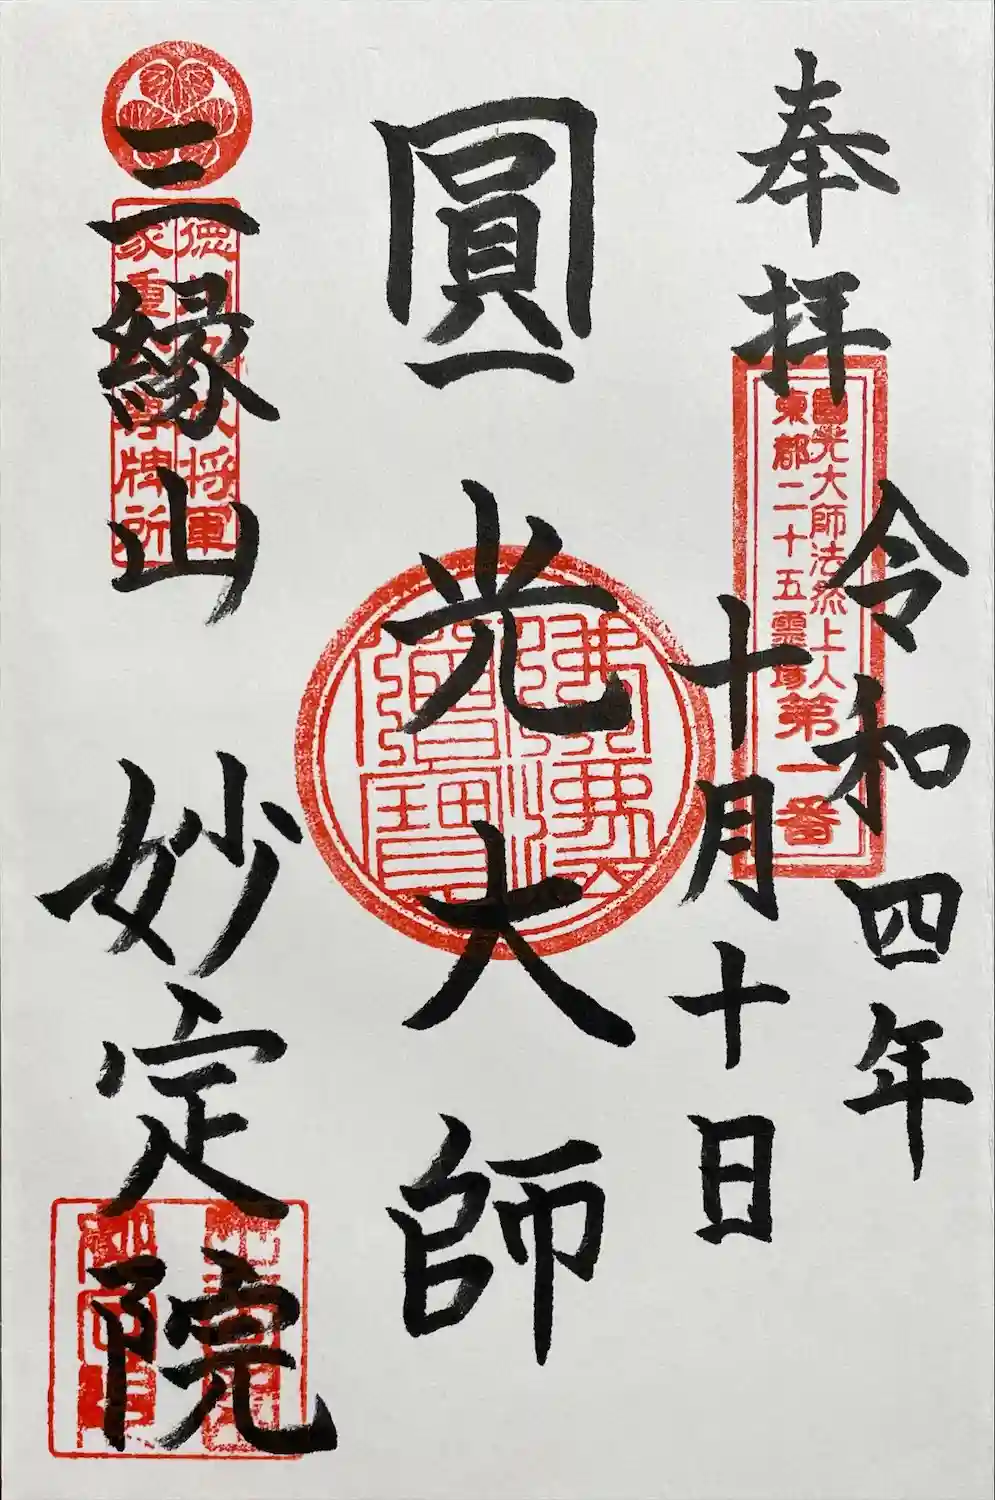 奉拝
圓光大師法然上人
東都二十五霊場第一番
令和四年
十月十日
圓光大師
三縁山
徳川 大将軍
家重 尊牌所
妙定院